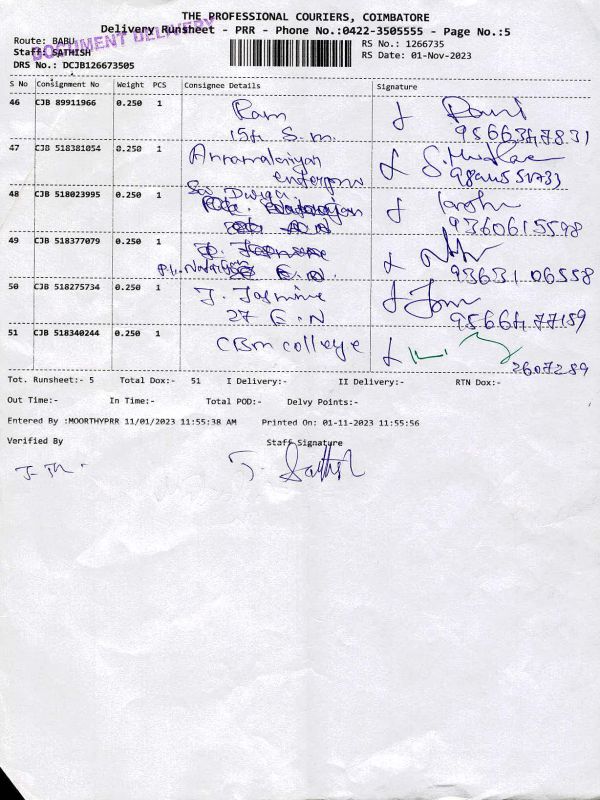 THE PROFESSIONAL COURIERS, COIMBATORE
Delivery Runsheet - PRR - Phone No.:0422-3505555 - Page No.:5
Route: BABU
RS No.: 1266735
DOCUMENT DELIVERY
Staff: SATHISH
RS Date: 01-Nov-2023
DRS No.: DCJB126673505
S No Consignment No Weight PCS Consignee Details Signature
46 CJB 89911966 0.250 1 Ram
15th S.m.
9566347831
47 CJB 518381054 0.250 1 Annamalaiyan
48 CJB 518023995 0.250 1 Sai Durga
9360615598
49 CJB 518377079 0.250 1
E.N.
93631 06558
50 CJB 518275734 0.250 1 J. Jasmine
27 E.N
9566477189
51 CJB 518340244 0.250 1 CBM college
2607289
Tot. Runsheet:- 5 Total Dox:- 51 I Delivery:- II Delivery:- RTN Dox:-
Out Time:- In Time:- Total POD:- Delvy Points:-
Entered By :MOORTHYPRR 11/01/2023 11:55:38 AM Printed On: 01-11-2023 11:55:56
Verified By Staff Signature